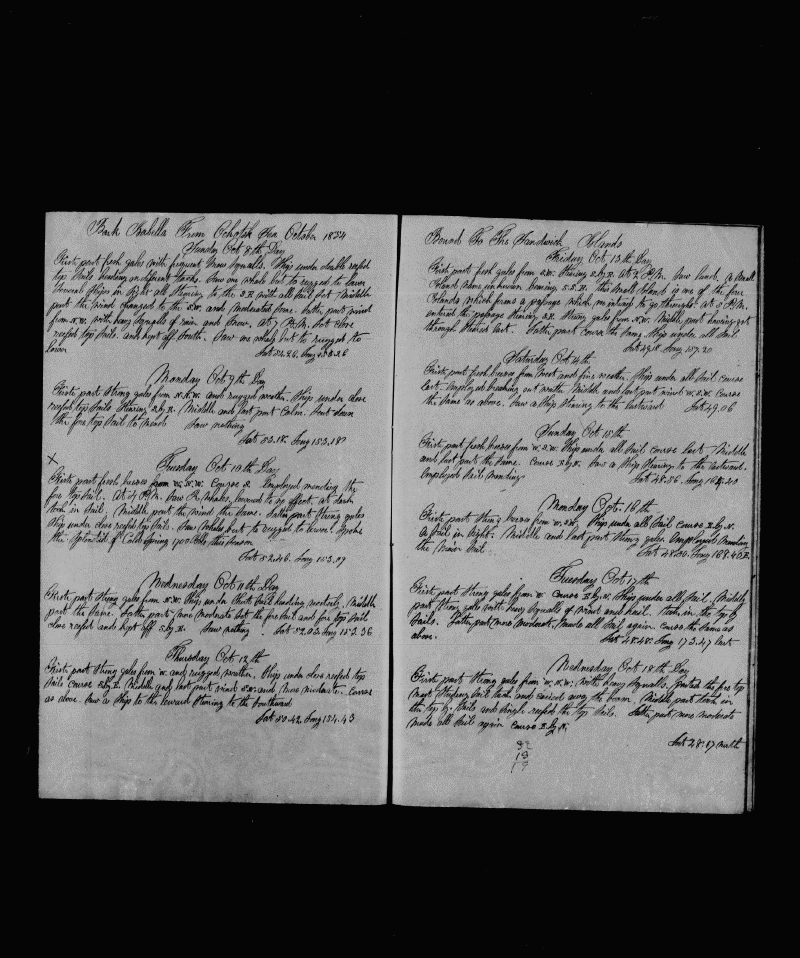 Bark Isabella From Ochotsk Sea October 1854
Sunday Oct 8th Day
First part fresh gales with frequent Snow Squalls. Ship under double reefed
top Sails heading on different tacks. Saw one whale but to rugged to lower
Several Ships in Sight all Steering to the S.E. with all Sail Set Middle
part the wind changed to the S.W. and moderated Some. Latter part wind
from N.W. with heavy Squalls of rain and Snow. At 7 P.M. Set close
reefed top Sails and kept off South. Saw one whale but to rugged to
lower
Monday Oct 9th Day
First part Strong gales from N.N.W. and rugged weather. Ship under close
reefed top Sails Steering S.by.E. Middle and last part Calm. Sent down
the fore top Sail to mend Saw nothing
Lat 53.18. Long 153.18?
X
Tuesday Oct 10th Day
First part fresh breeses from W.N.W. Course S. Employed mending the
fore top Sail. At 4 P.M. Saw R. Whales, lowered to no effect, at dark
took in Sail. Middle part the wind the Same. Latter part Strong gales
Ship under close reefed top Sail. Saw Whales but to rugged to lower. Spoke
the Splendid of Coldspring 1700 bbls this Season
Lat 52.46. Long 153.09
Wednesday Oct 11th Day
First part Strong gales from N.W. Ship under Short Sail heading westerly. Middle
part the Same. Latter part more moderate Set the fore Sail and fore top Sail
close reefed and kept off S.by.E. Saw nothing. Lat 52.03. Long 153.36
Thursday Oct 12th
First part Strong gales from W. and rugged weather. Ship under close reefed top
Sails Course S.by.E. Middle and last part wind S.W. and more moderate. Course
as above. Saw a Ship to the leeward Steering to the Southward
Lat 50.42. Long 154.43
Bound To The Sandwich Islands
Friday Oct 13th Day
First part fresh gales from S.W. Steering S.by.E. At 2 P.M. Saw land, a Small
Island name unknown bearing S.S.E. this Small Island is one of the four
Islands which forms a passage which we intend to go through. at 5 P.M.
entered the passage Steering S.E. Strong gales from N.W. Middle part having got
through Steered East. Latter part course the Same. Ship under all Sail
Lat 49.18 Long 157.20
Saturday Oct 14th
First part fresh breeses from West and fine weather. Ship under all Sail Course
East. Employed breaking out water. Middle and last part wind W.S.W. Course
the Same as above. Saw a Ship Steering to the Eastward Lat 49.06
Sunday Oct 15th
First part fresh breeses from W.S.W. Ship under all Sail course East. Middle
and last part the Same. Course E.by.N. Saw a Ship Steering to the Eastward.
Employed Sail Mending Lat 48.56. Long 40
Monday Oct. 16th
First part Strong breeses from W.S.W. Ship under all Sail course E.by.N.
A Sail in Sight. Middle and last part Strong gales. Employed Mending
the Main Sail Lat 48.50. Long 169.40.E.
Tuesday Oct 17th
First part Strong gales from W. Course E.by.N. Ship under all Sail. Middle
part Strong gales with heavy Squalls of wind and hail. took in the top G.
Sails. Latter part more moderate, Made all Sail again. Course the Same as
above. Lat 48.48. Long 173.47 East
Wednesday Oct 18th Day
First part Strong gales from W.N.W. with heavy Squalls. parted the fore top
Mast Steering Sail tack and carried away the boom. Middle part took in
the top G. Sails and Single reefed the top Sails. Latter part more moderate
made all Sail again Course E.by.N.
Lat 48.07 North
92
19
19